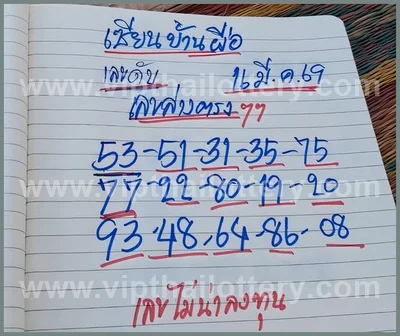 เซียนบ้านผือ
เลขดับ 16 มี.ค.69
เลขล่างตรงๆๆ
53-51-31-35-75
77-22-80-19-20
93-48-64-86-08
เลขไม่น่าลงทุน
www.vipthailottery.com
www.vipthailottery.com
www.vipthailottery.com